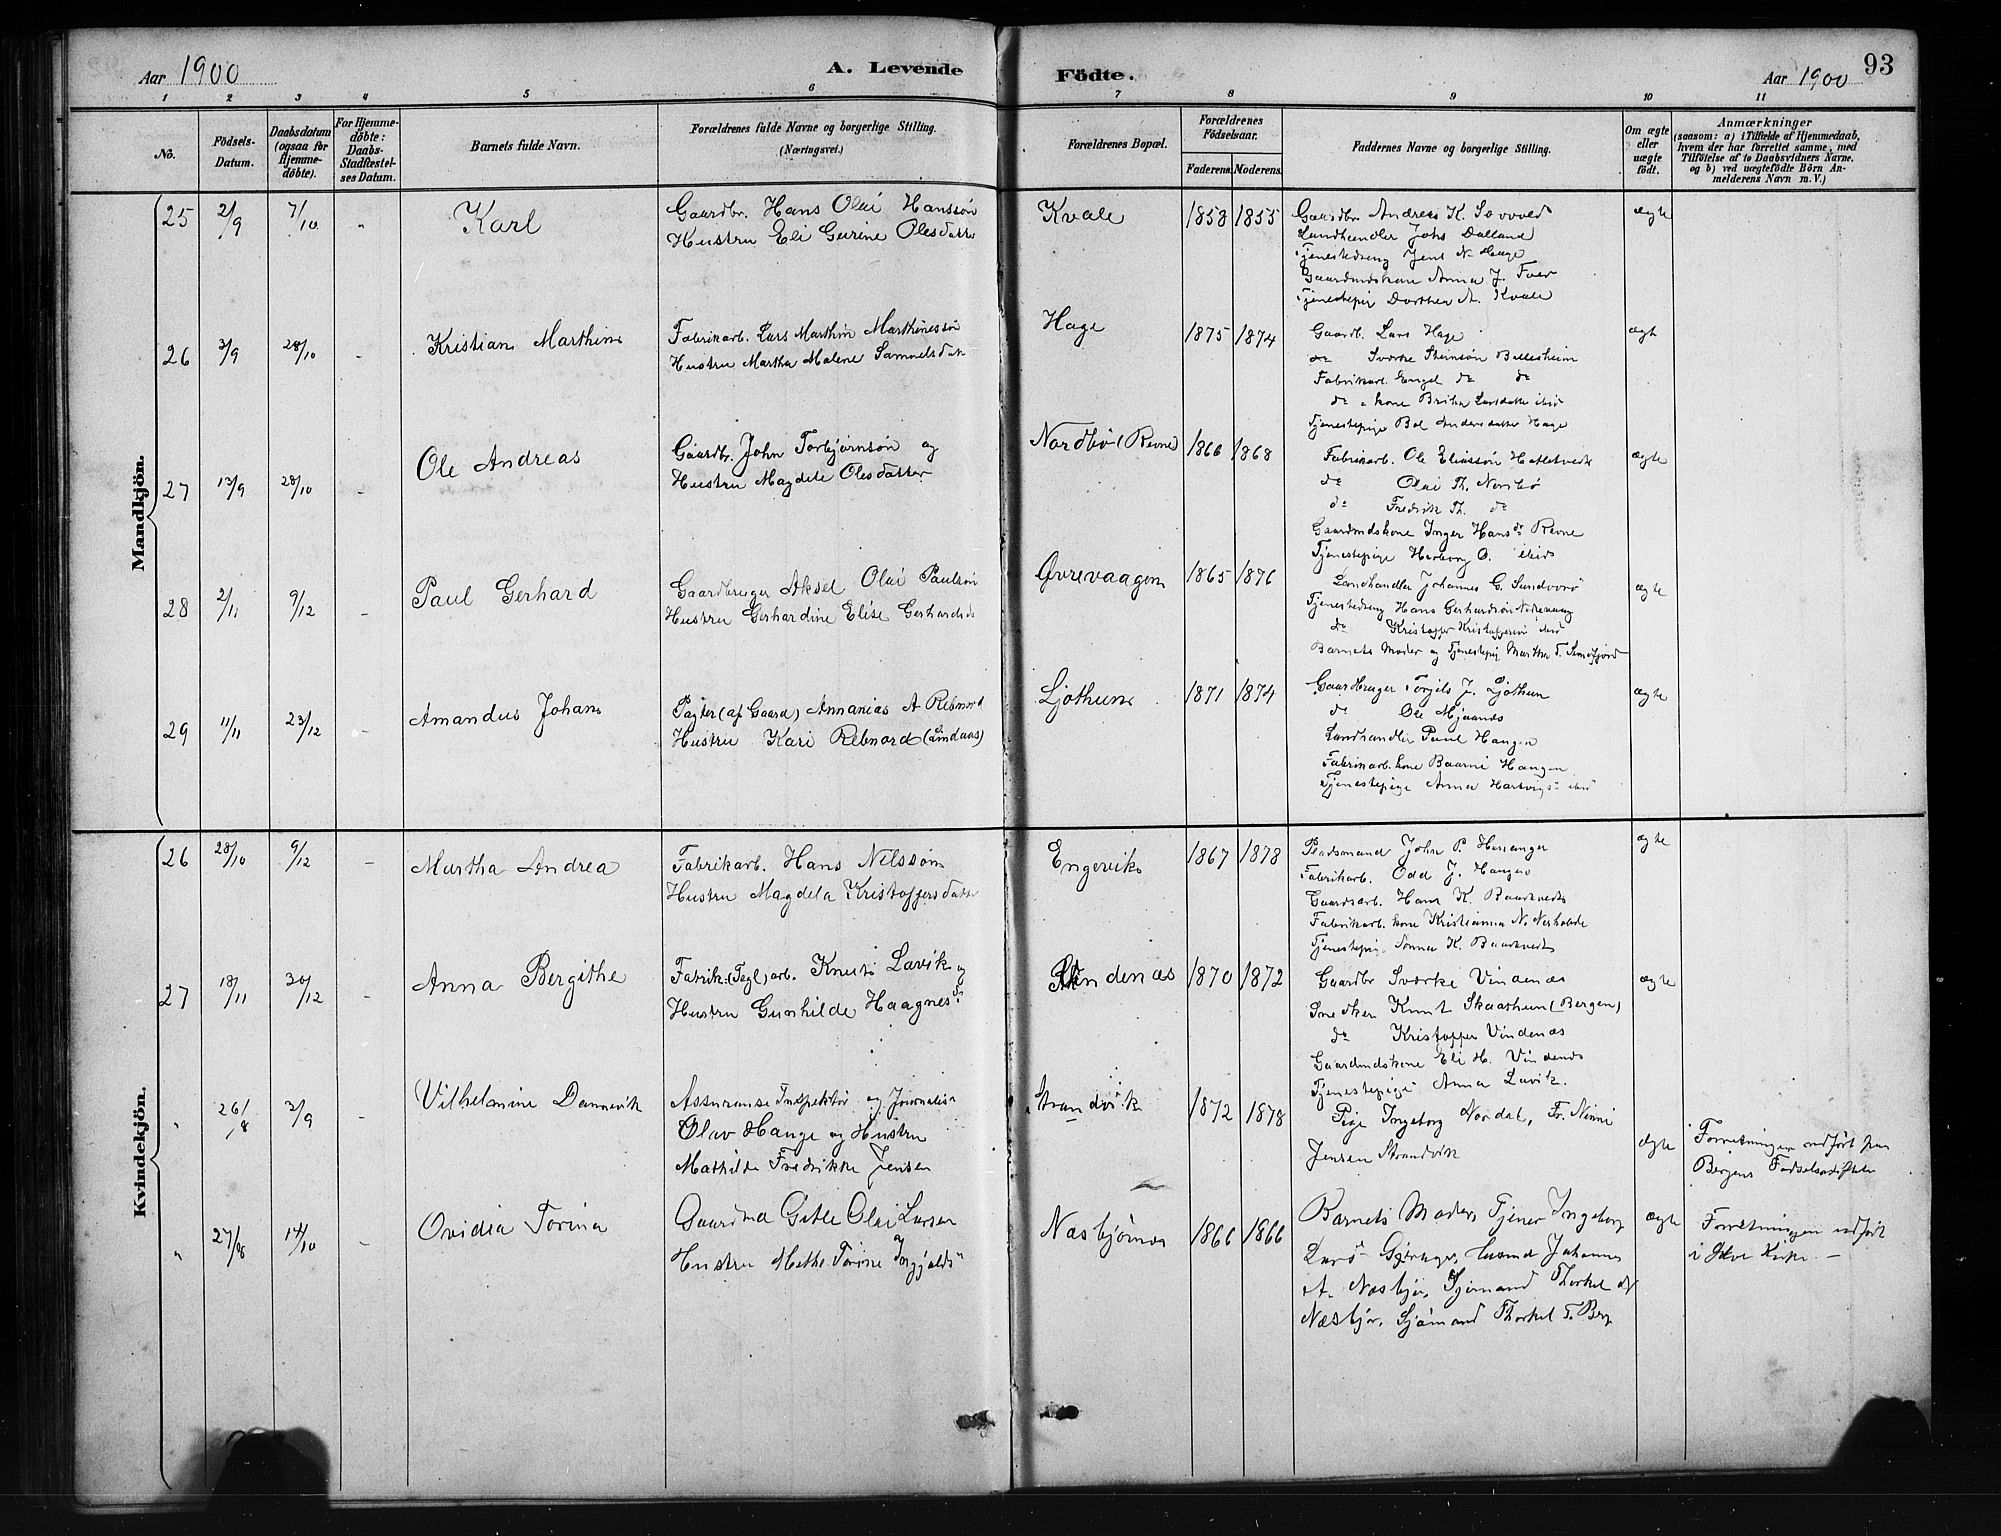 Aar 1900
A. Levende Födte.
Aar 1900
93
1 2 3 4 5 6 7 8 9 10 11
No.
Födsels-
Datum.
Daabsdatum
(ogsaa for
Hjemme-
döbte).
For Hjemme-
döbte:
Daabs-
Stadfæstel-
ses Datum.
Barnets fulde Navn.
Forældrenes fulde Navne og borgerlige Stilling.
(Næringsvei.)
Forældrenes Bopæl.
Forældrenes
Födselsaar.
Faderens. Moderens.
Faddernes Navne og borgerlige Stilling.
Om ægte
eller
uægte
födt.
Anmærkninger
(saasom: a) i Tilfælde af Hjemmedaab,
hvem der har forrettet samme, med
Tilföielse af to Daabsvidners Navne,
og b) ved uægtefödte Börn An-
melderens Navn m. V.)
Mandkjön.
25 2/9 7/10 " Karl
Gaardbr. Hans Olai Hanssön
Hustru Eli Gurine Olesdatter
Kvale 1858 1855
Gaardbr Andreas K.
Landhandler Johs Dalland
Tjenestedreng Jens N. Hage
Gaardmdskone Anna J.
Tjenestepig Dorthea A. Kvale
ægte
26 3/9 28/10 - Kristian Marthin
Fabrikarb. Lars Marthin Marthinessön
Hustru Martha Malene Samuelsdat
Hage 1875 1874
Gaardb. Lars Hage
do Sværke Steinsön Bellesheim
Fabrikarb. Engel do do
do kone Britha Larsdatter ibid
Tjenestepige Bol Andersdatter Hage
ægt
27 13/9 28/10 - Ole Andreas
Gaardbr. John Torbjørnsön og
Hustru Magdele Olesdatter
Nordbö (Revne) 1866 1868
Fabrikarb. Ole Eliassön Hatletvedt
do Olai Th. Nordbö
do Fredrik Th. do
Gaardmdskone Inger Hansdr Revne
Tjenestepige Herborg O. ibid
ægte
28 2/11 9/12 - Paul Gerhard
Gaardbruger Aksel Olai Paulsön
Hustru Gerhardine Elise Gerhardsd
Øvrevaagen 1865 1876
Landhandler Johannes G. Sundvorö
Tjenestedreng Hans Gerhardsön Nedrevaag
do Kristoffer Kristoffersen ibid
Barnets Moder og Tjenestepig Martha T.
ægte
29 11/11 23/12 - Amandus Johan
Pagter (af Gaard) Annanias A Rebnord
Hustru Kari Rebnord (Lindaas)
Ljothun 1871 1874
Gaardbruger Torgils J. Ljothun
do Ole Mjaanes
Landhandler Paul Haugen
Fabrikarb. kone Baarni Haugen
Tjenestepige Anna Hartvigs ibid
ægte
Kvindekjön.
26 28/10 9/12 - Martha Andrea
Fabrikarb. Hans Nilssön
Hustru Magdela Kristoffersdatter
Engevik 1867 1878
Pladsmand John P. Hananger
Fabrikarb. Odd J. Haugen
Gaardsarb. Hans K. Baarkvedts
Fabrikarb. kone Kristianna N.
Tjenestepig. Anna K. Baarkvedts
ægte
27 18/11 30/12 - Anna Bergithe
Fabrik. (Tegl) arb. Knut Lavik og
Hustru Gunhilde Haagnesdr
Vindenæs 1870 1872
Gaardbr Sværke Vindenæs
Snedker Knut Skaathun (Bergen)
do Kristoffer Vindenæs
Gaardmdskone Eli H. Vindenæs
Tjenestepige Anna Lavik.
ægte
" 26/8 2/9 Vilhelmine Dannevik
Assuranse Inspektör og Journalist
Olav Hauge og Hustru
Mathilde Fredrikke Jensen
Strandvik 1872 1878
Pige Ingeborg Nordal, Fr. Ninni
Jensen Strandvik
ægte
Forretningen udfört paa
Bergens Födselsstiftelse
" 27/8 14/10 - Ovidia Torina
Gaardmd Gitle Olai Larsen
Hustru Methe Torine Ingjalds
Næsbjørnes 1866 1866
Barnets Moder, Tjener Ingeborg
Johannes
A. Næsbjør, Sjømand Thorkel
Næsbjør, Sjömand Thorkel T. Berg
ægte
Forretningen udfört
i Kirke. -